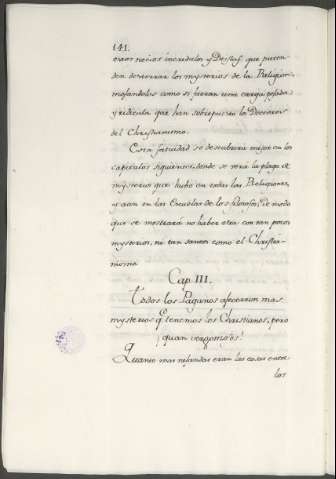 141.
estos necios incredulos y Deistas que preten-
den desterrar los mysterios de la Religion
mofandolos como si fueran una carga pesada
y ridicula que han sobrepuesto los Doctores
del Christianismo.
Esta falsedad se descubrirá mejor en los
capitulos siguientes, donde se verá la plaga de
mysterios que hubo en todas las Religiones,
y aun en las Escuelas de los Philosofos; de modo
que se mostrará no haber otra con tan pocos
mysterios, ni tan santos como el Christia-
nismo.
Cap III.
Todos los Paganos afectaron mas
mysterios q̃ tenemos los Christianos, pero
¡quan vergonzosos!
Quanto mas nefandas eran las cosas entre
los